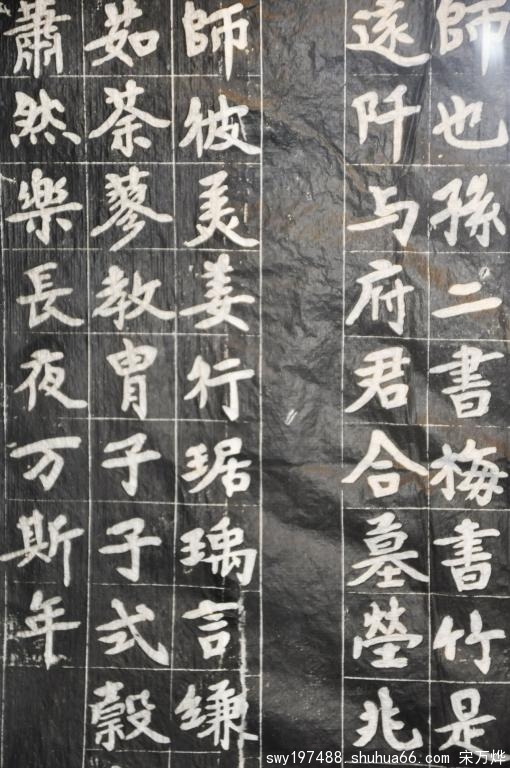 師也孫二書梅書竹是
遂阡与府君合墓塋兆
師彼美姜行琚瑀言縑
茹荼蓼教胄子子式穀
蕭然樂長夜万斯年
swy197488.shuhua66.com 宋万烨